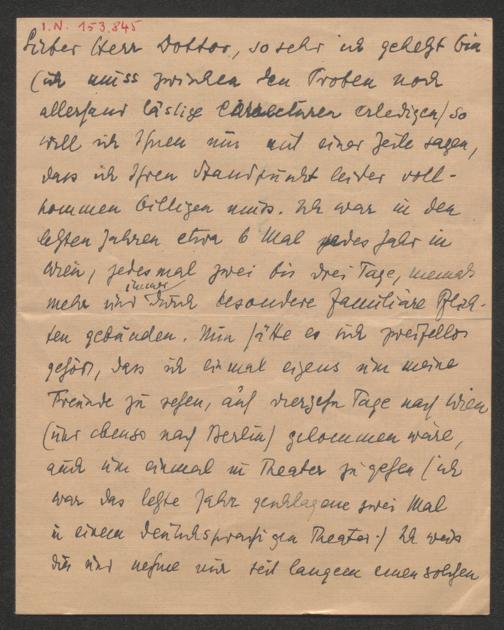 I.N. 153.845
Lieber Herr Doktor, so sehr ich gehetzt bin
(ich muss zwischen den Proben noch
allerhand lästige Correcturen erledigen) so
will ich Ihnen nur mit einer Zeile sagen,
dass ich Ihren Standpunkt leider voll-
kommen billigen muss. Ich war in den
letzten Jahren etwa 6 Mal jedes Jahr in
Wien, jedesmal zwei bis drei Tage, niemals
mehr und immer durch besondere familiäre Pflich-
ten gebunden. Nun hätte es sich zweifellos
gehört, dass ich einmal eigens um meine
Freunde zu sehen, auf vierzehn Tage nach Wien
(und ebenso nach Berlin) gekommen wäre,
auch um einmal in Theater zu gehen (ich
war das letzte Jahr geschlagene zwei Mal
in einem deutschsprachigen Theater!) Ich weiss
dies und nehme mir seit langem einen solchen